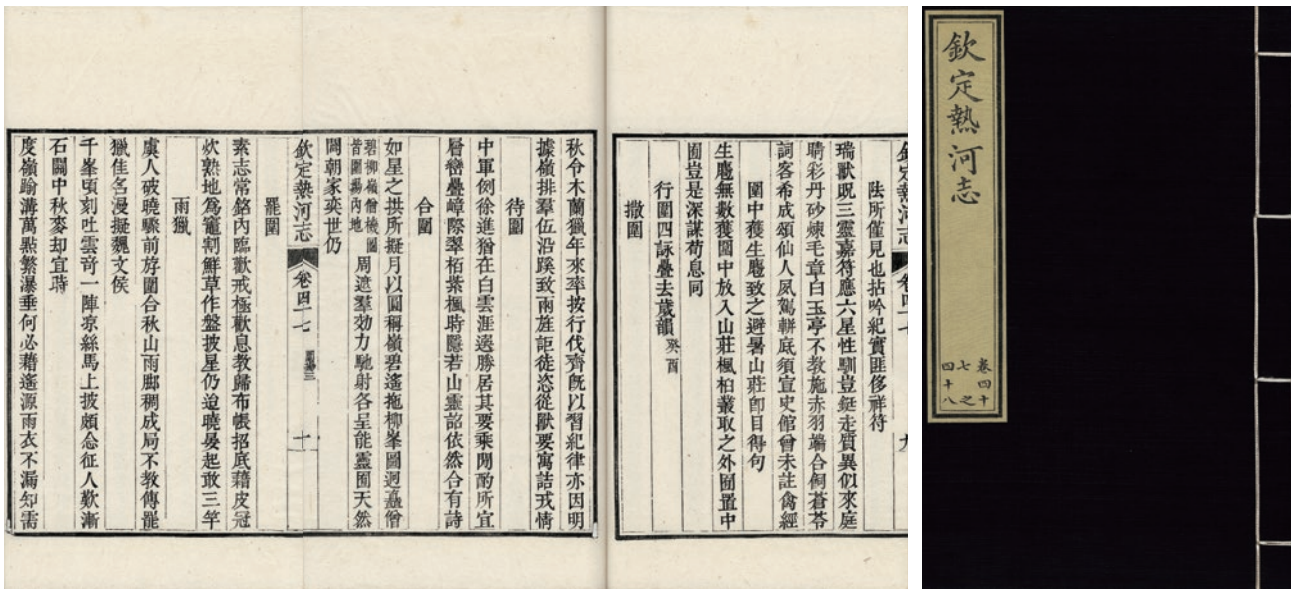 欽定熱河志
卷四十
七之
四十八
欽定熱河志 卷四十七
九
陸所僅見也拈吟紀實匪侈祥符
瑞獸貺三靈嘉符應六星性馴豈鋌走質異似來庭
睛彩丹砂煉毛章白玉亭不教施赤羽端合伺蒼苓
詞客希成頌仙人夙駕輧底須宣史館曾未註禽經
圍中獲生麅致之避暑山莊卽目得句
生麅無數獲圍中放入山莊楓柏叢取之外囿置中
囿豈是深謀苟息同
行圍四詠疊去歲韻癸酉
撒圍
秋令木蘭獵年來率按行伐齊旣以習紀律亦因明
據嶺排羣伍沿蹊致兩旌詎徒恣從獸要寓詰戎情
待圍
中軍例徐進猶在白雲涯邊勝居其要乘閒酌所宜
層巒疊嶂際翠栢紫楓時隱若山靈詔依然合有詩
合圍
如星之拱所擬月以圓稱嶺碧遙拖柳峯圖迥矗僧
碧柳嶺僧機圖
皆圍場內地
周遮羣効力馳射各呈能靈囿天然
闢朝家奕世仍
欽定熱河志 卷四十七 圍場三 十
罷圍
素志常銘內臨歡戒極歡息教歸布帳招底藉皮冠
炊熟地爲竈割鮮草作盤披星仍迨曉晏起敢三竿
雨獵
虞人破曉驟前斿圍合秋山雨脚稠成局不教傳罷
獵佳名漫擬魏文侯
千峯頃刻吐雲奇一陣凉絲馬上披頗念征人歎漸
石關中秋麥却宜蒔
度嶺踰溝萬點繁瀑垂何必藉遙源雨衣不漏知需